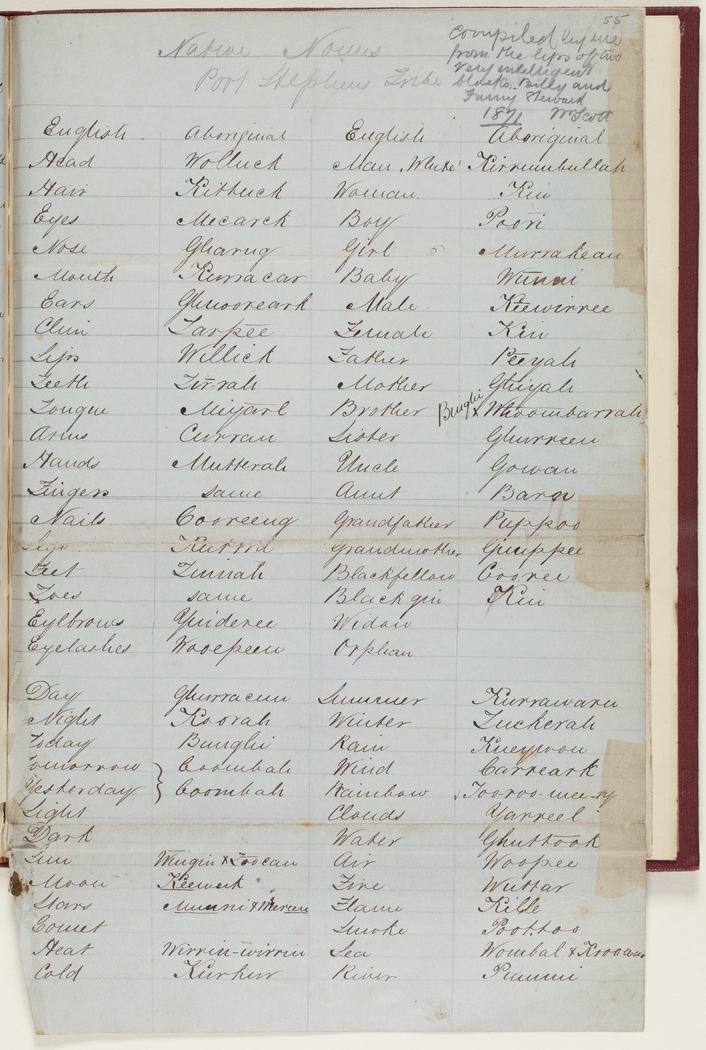 55
Native Nouns
Port Stephens Tribe
Compiled by me
from the lips of two
very intelligent
blacks, Billy and
Fanny Steward
1871 W Scott
English Aboriginal English Aboriginal
Head Wolluck Man, White Kirrumbullah
Hair Kittuck Woman Kin
Eyes Mecarck Boy Poori
Nose Gharng Girl Murrakeau
Mouth Kurracar Baby Wunni
Ears Ghnooreark Male Kiewirree
Chin Tarpee Female Kin
Lips Willick Father Peeyah
Teeth Tir-rah Mother Ghiyah
Tongue Miyarl Brother Binghi & Whoombarrah
Arms Curran Sister Ghurreen
Hands Mutterah Uncle Gowan
Fingers same Aunt Barn
Nails Cooreeng Grandfather Puppoo
Legs Grandmother
Feet Tinnah Blackfellow Cooree
Toes same Black gin Kin
Eyebrows Yinderee Widow
Eyelashes Wooepeen Orphan
Day Ghurracun Summer Kurrawarn
Night Koorah Winter Tuckerah
Today Bunghi Rain Kueywon
Tomorrow } Coombah Wind Carreark
Yesterday } Coombah Rainbow Tooroo-mee-ry
Light Clouds Yarreel
Dark Water Ghuttook
Sun & Toocan Air Woopee
Moon Keewuk Fire Wuttar
Stars Munni & Flame Kille
Comet Smoke Poottoo
Heat Wirrin-wirrin Sea Wombal &
Cold Kurkur River Pummi